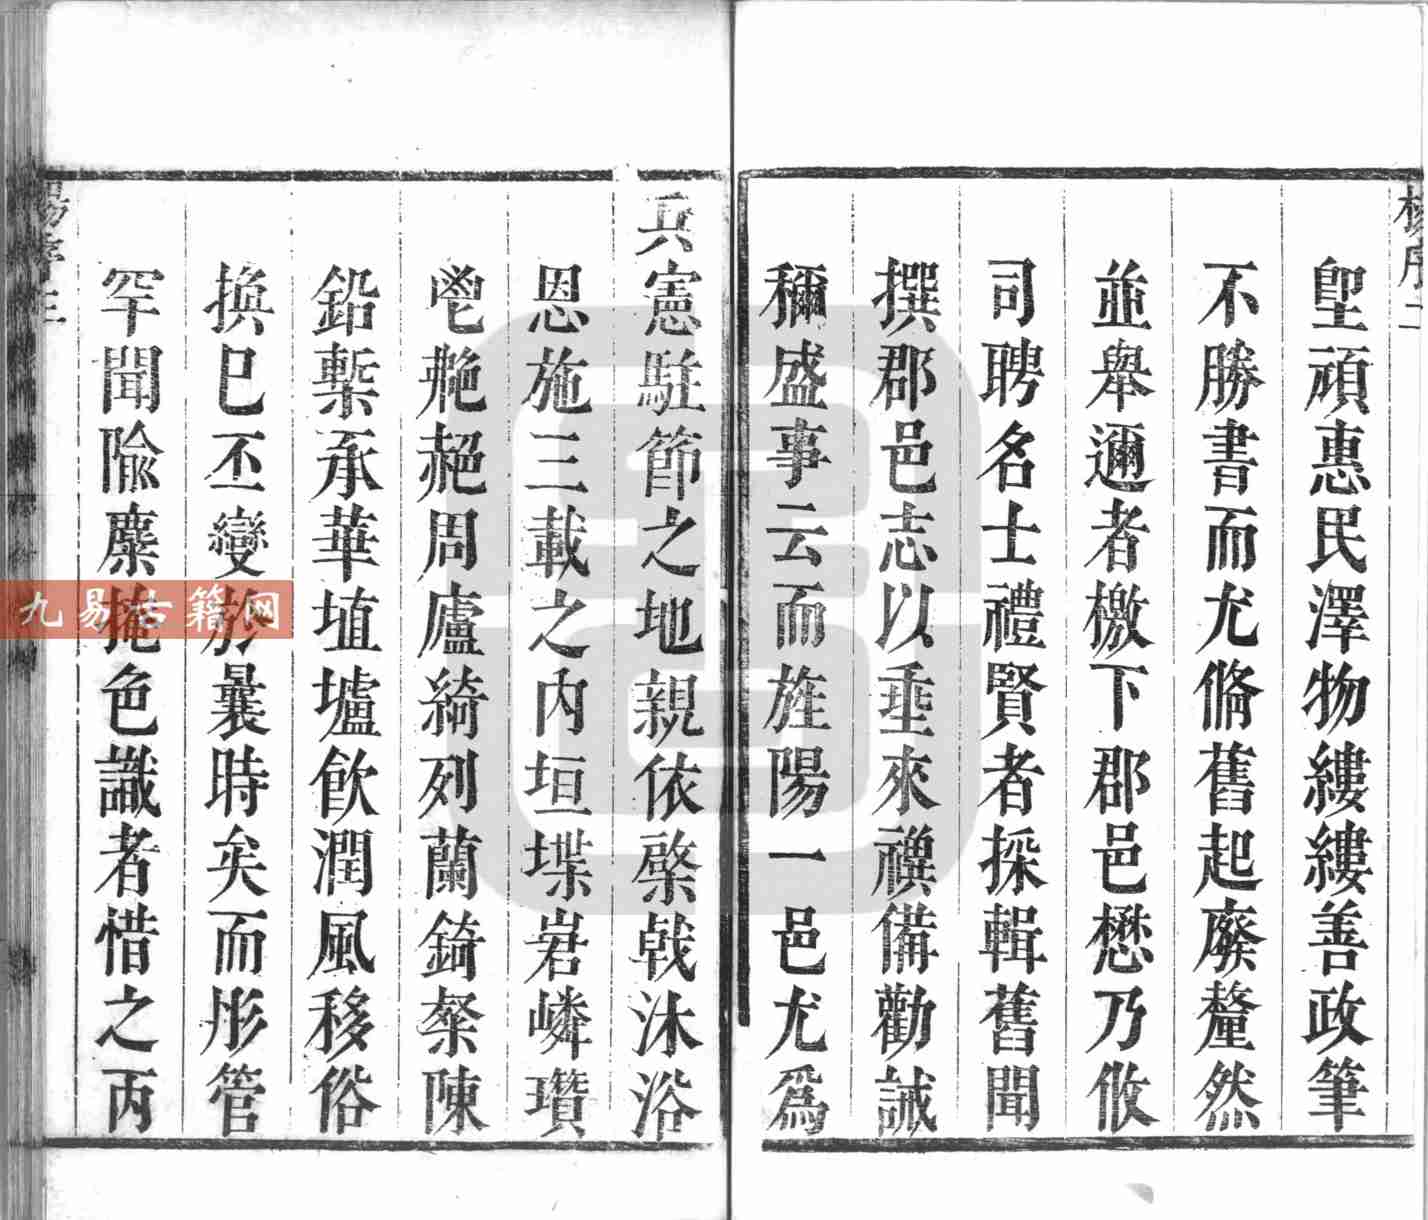 楊序二
堲頑惠民澤物縷縷善政筆
不勝書而尤脩舊起廢釐然
並舉邇者檄下郡邑懋乃攸
司聘名士禮賢者採輯舊聞
撰郡邑志以垂來禩備勸誡
穪盛事云而旌陽一邑尤爲
兵憲駐節之地親依棨戟沐浴
恩施三載之內垣堞岩嶙瓚
鬯赩赩周廬綺列蘭錡粲陳
鉛槧承華埴壚飲潤風移俗
換已丕變於曩時矣而彤管
罕聞隃麋掩色識者惜之丙
楊序三
九易古籍网